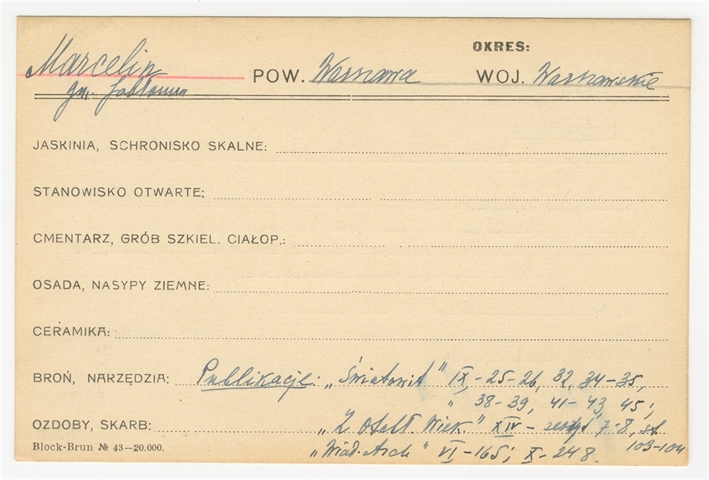 OKRES:
Marcelin POW. Warszawa WOJ. Warszawskie
gm. Jabłonna
JASKINIA, SCHRONISKO SKALNE:
STANOWISKO OTWARTE:
CMENTARZ, GRÓB SZKIEL. CIAŁOP.:
OSADA, NASYPY ZIEMNE:
CERAMIKA:
BROŃ, NARZĘDZIA: Publikacje: „Światowit" IX-25-26, 32, 34-35,
" 38-39, 41-43, 45;
OZDOBY, SKARB: „Z Otchł. Wiek." XIV - zeszyt 7-8, st.
103-104
Block-Brun № 43—20.000. „Wiad. Arch" VI-165; X-248.